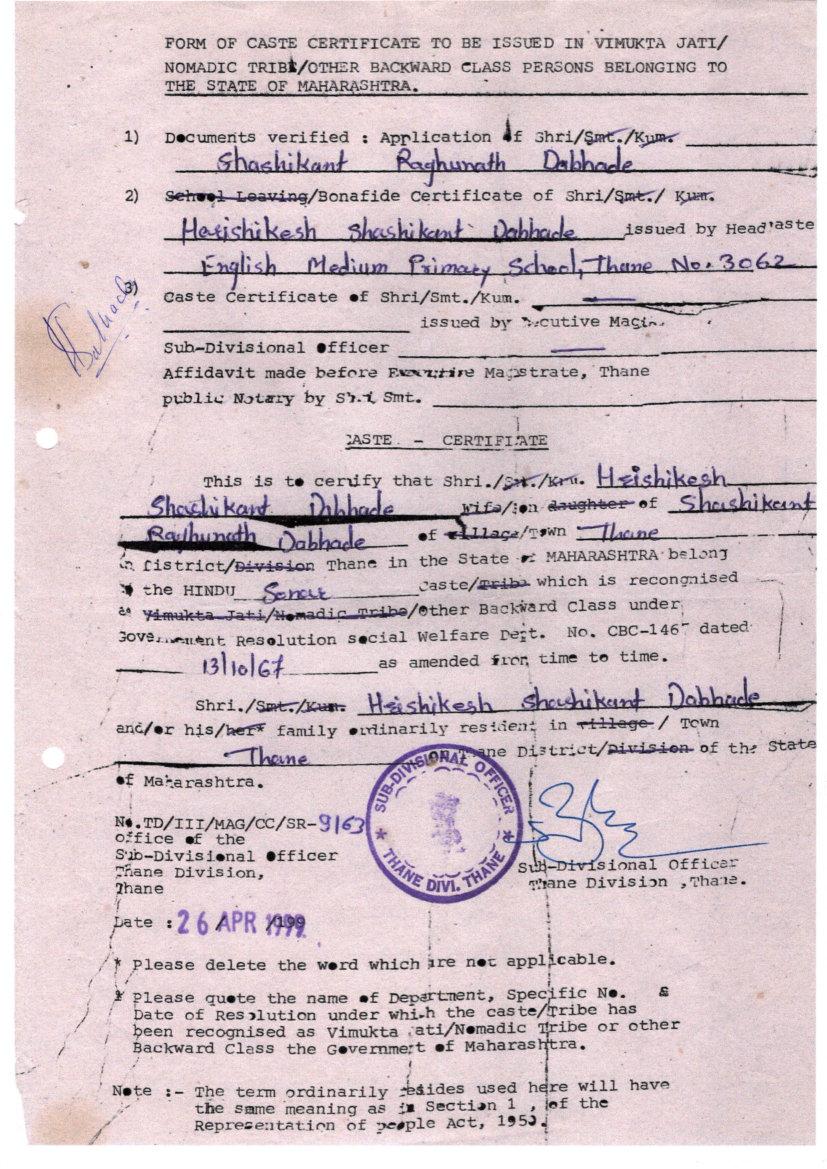 FORM OF CASTE CERTIFICATE TO BE ISSUED IN VIMUKTA JATI/
NOMADIC TRIBE/OTHER BACKWARD CLASS PERSONS BELONGING TO
THE STATE OF MAHARASHTRA.
1) Documents verified : Application of Shri/Smt./Kum.
Shashikant Raghunath Dabhade
2) School Leaving/Bonafide Certificate of Shri/Smt./ Kum.
Herishikesh Shashikant Dabhade issued by Head
English Medium Primary School, Thane No. 3062
3)
Caste Certificate of Shri/Smt./Kum.
issued by
Sub-Divisional Officer
Affidavit made before Executive Magistrate, Thane
public Notary by Shri Smt.
CASTE - CERTIFICATE
This is to certify that Shri./Smt./Kum. Hrishikesh
Shashikant Dabhade Wife/son daughter of Shashikant
Raghunath Dabhade of village/Town Thane
in District/Division Thane in the State of MAHARASHTRA belong
the HINDU Sonar Caste/Tribe which is recongnised
as Vimukta Jati/Nomadic Tribe/Other Backward Class under
Government Resolution social Welfare Dept. No. CBC-1467 dated
13/10/67 as amended from time to time.
Shri./Smt./Kum. Hrishikesh Shashikant Dabhade
and/or his/her* family ordinarily resident in village / Town
Thane Thane District/Division of the State
of Maharashtra.
SUB-DIVISIONAL OFFICER
THANE DIVI. THANE
No.TD/III/MAG/CC/SR-9163
office of the
Sub-Divisional Officer
Thane Division,
Thane
Sub-Divisional Officer
Thane Division ,Thane.
Date : 26 APR 1999
* Please delete the word which are not applicable.
* Please quote the name of Department, Specific No. &
Date of Resolution under which the caste/Tribe has
been recognised as Vimukta Jati/Nomadic Tribe or other
Backward Class the Government of Maharashtra.
Note :- The term ordinarily resides used here will have
the same meaning as in Section 1 , of the
Representation of people Act, 1950.